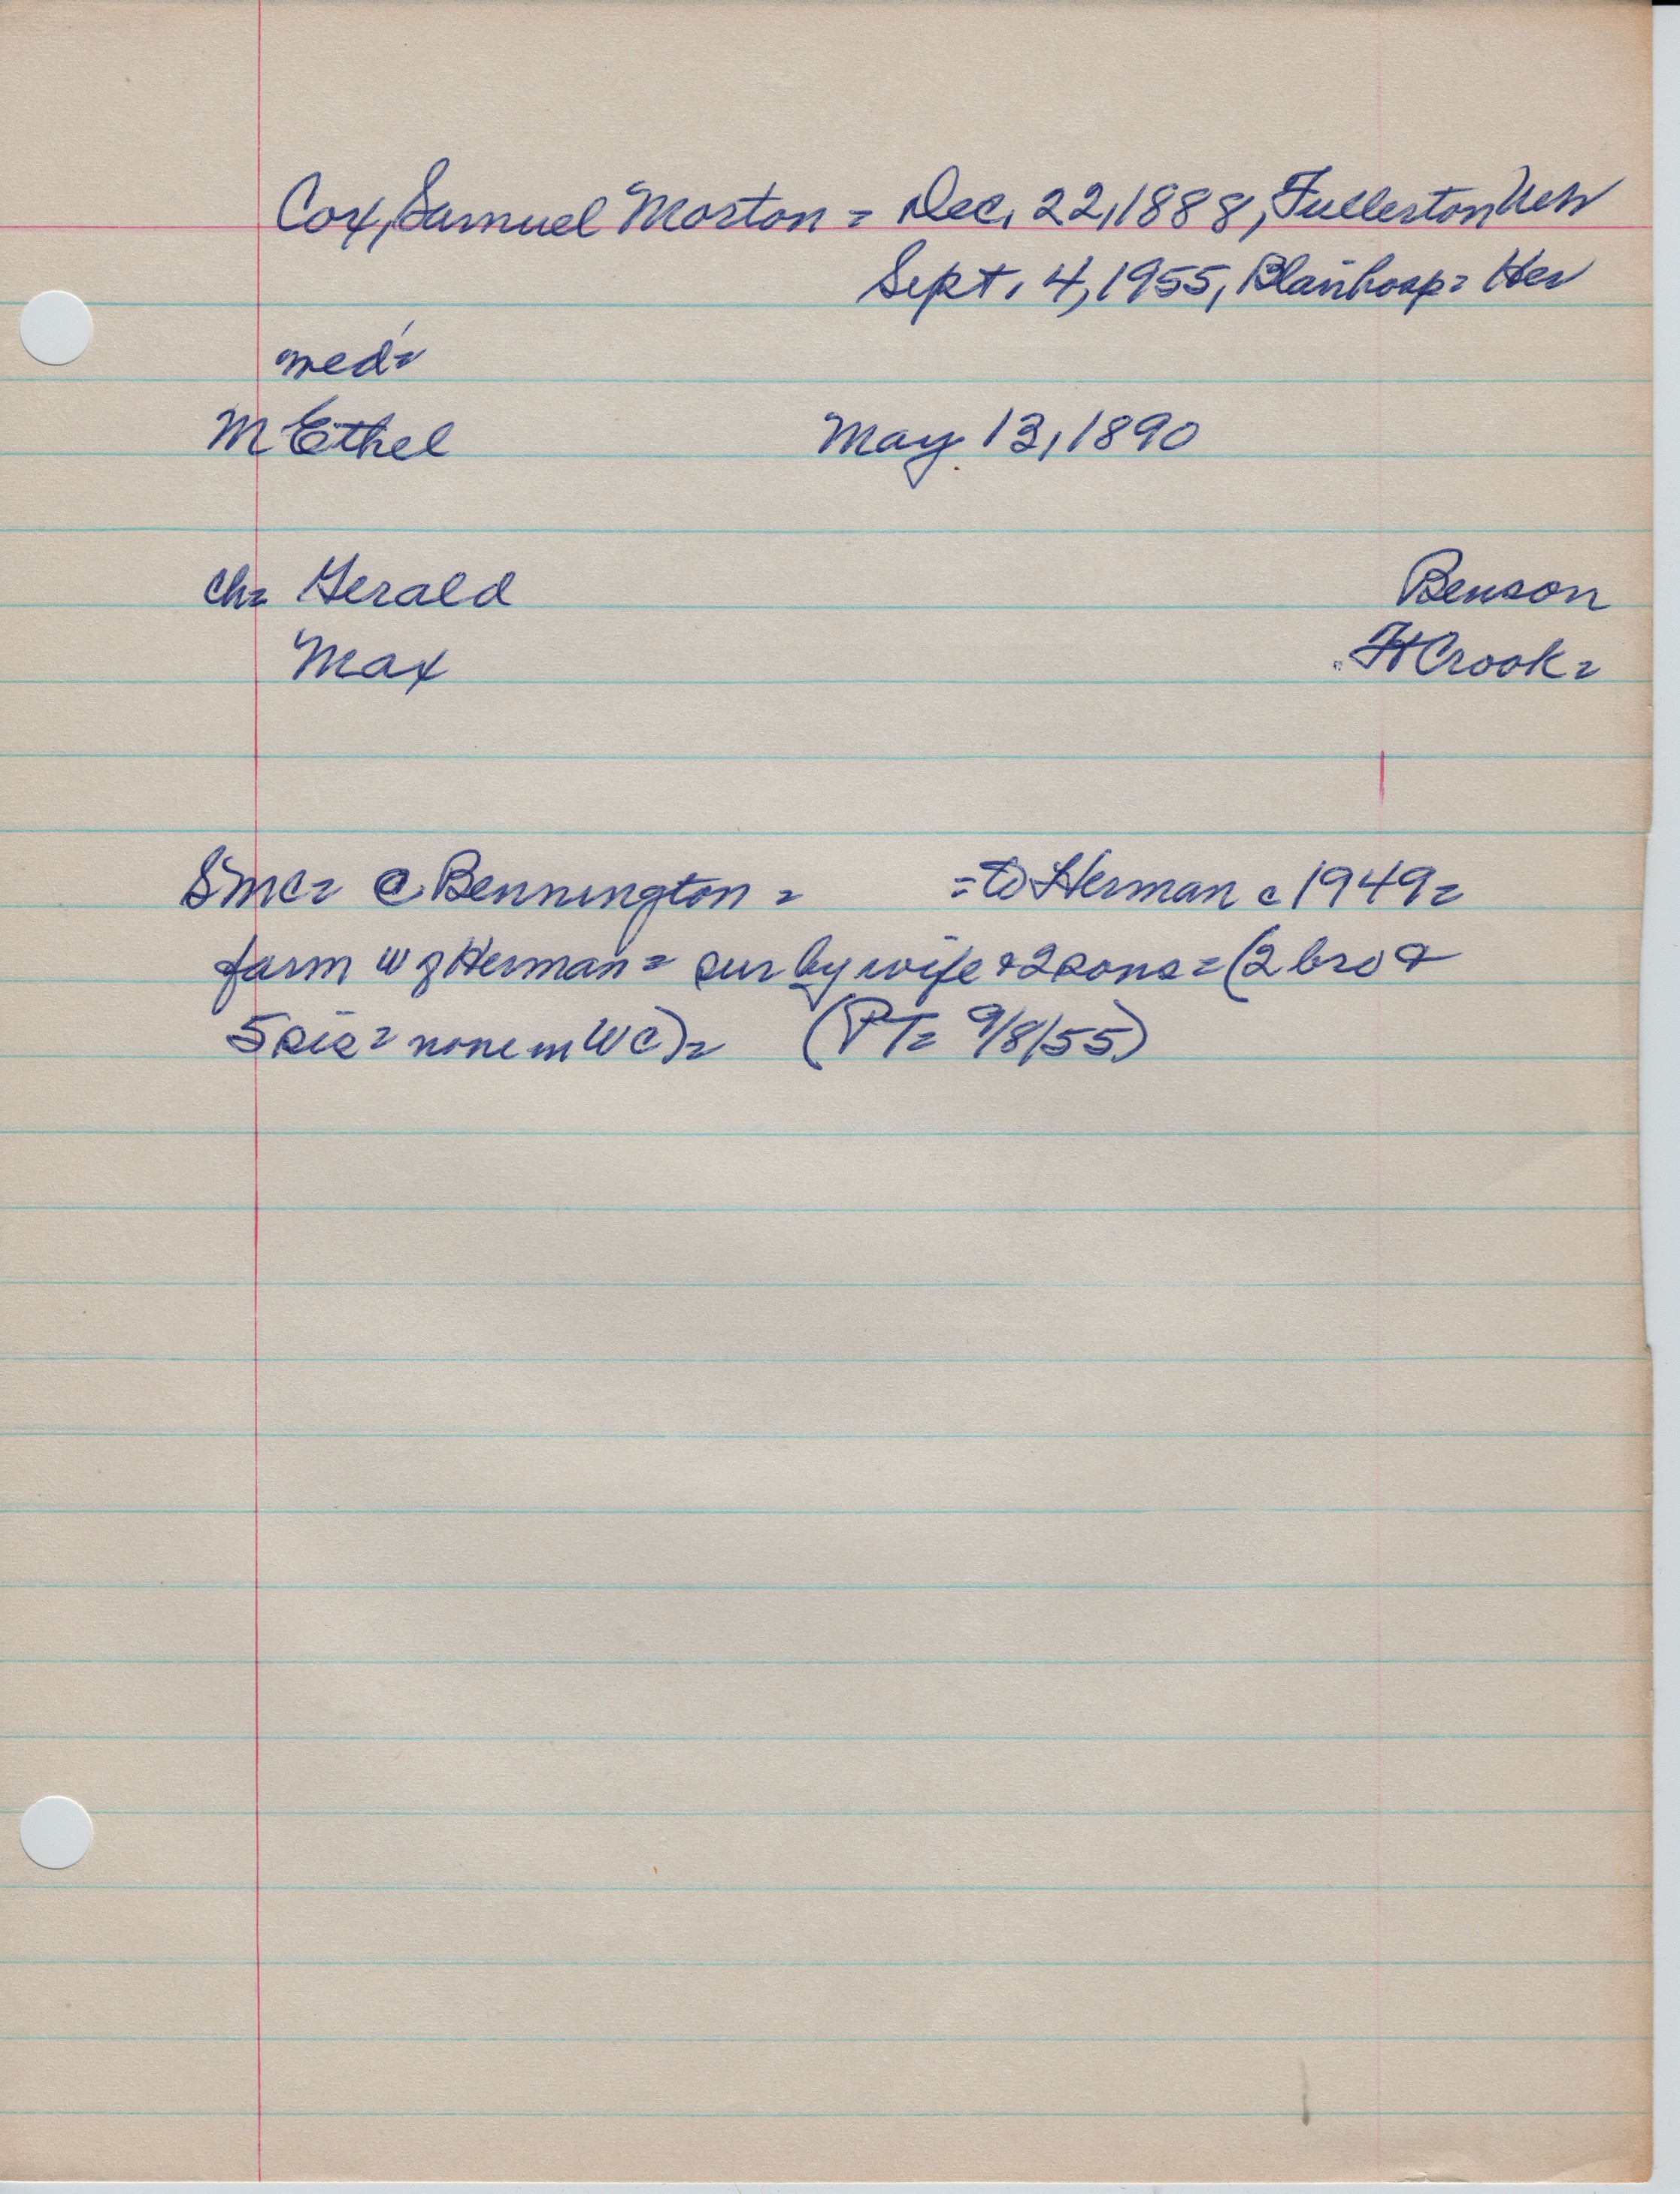 Cox, Samuel Morton = Dec. 22, 1888, Fullerton Neb
Sept. 4, 1955, Blairhosp = Her
med =
M Ethel May 13, 1890
ch = Gerald Benson
Max Ft Crook =
SMC = c Bennington = = to Herman c 1949 =
farm w of Herman = sur by wife & 2 sons = (2 bro &
5 sis = none in WC) = (PT = 9/8/55)